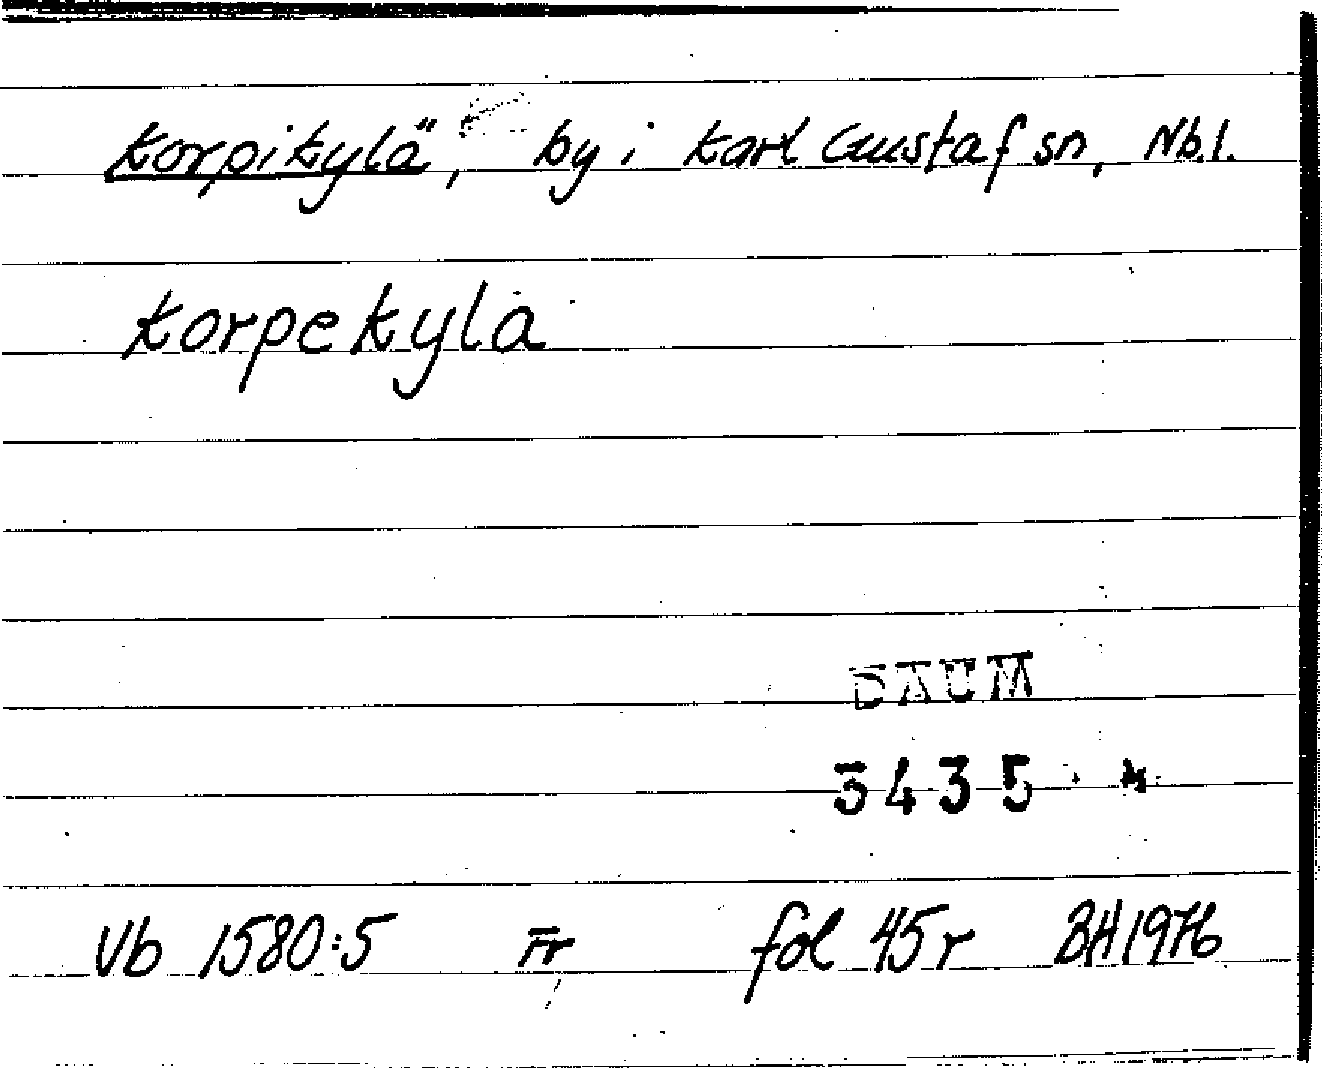 Korpikylä, by i Karl Gustaf sn, Nb.l.
Korpekyla
DAUM
3435
Vb 1580:5 Fr fol 45r BH1976